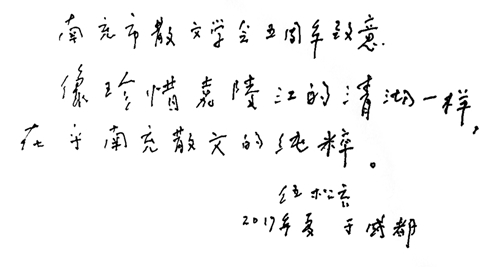 南充市散文学会五周年致意.
像珍惜嘉陵江的清澈一样,
在乎南充散文的纯粹。
伍松乔
2017年夏 于成都